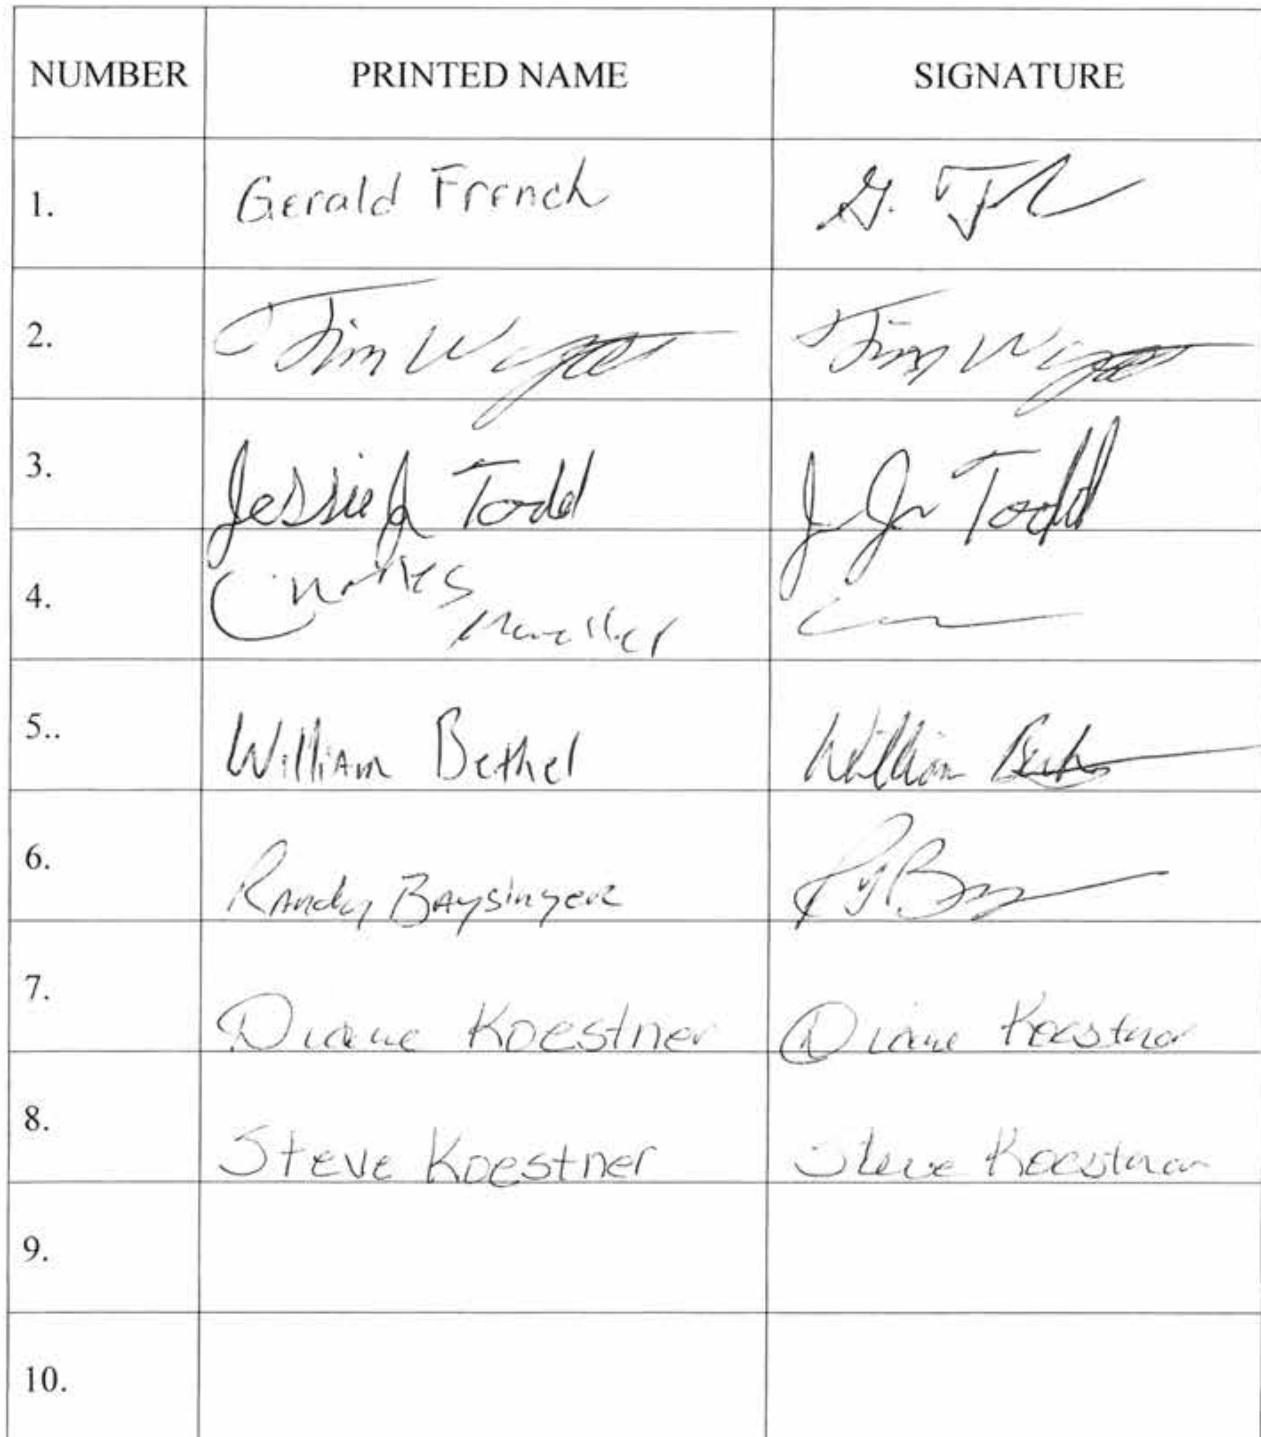 NUMBER PRINTED NAME SIGNATURE
1. Gerald French G.
2. Tim Tim
3. Jessie Jr Todd J Jr Todd
4. Charles
5.. William Bethel William
6. Randy Baysinger
7. Diane Koestner Diane Koestner
8. Steve Koestner Steve Koestner
9.
10.